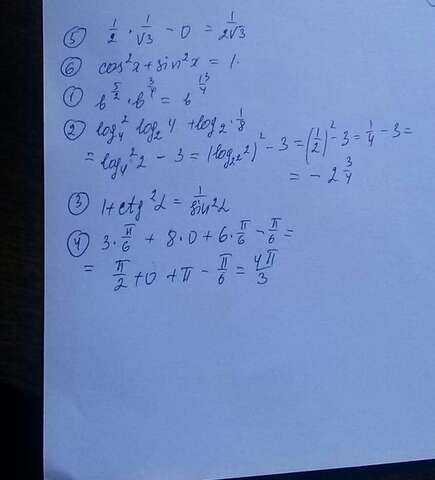 ⑤ 1/2 · 1/√3 − 0 = 1/2√3
⑥ cos²x + sin²x = 1.
① b^(5/2) · b^(3/4) = b^(13/4)
② log₄² log₂4 + log₂ · 1/8
= log₄²2 − 3 = (log₂²2)² − 3 = (1/2)² − 3 = 1/4 − 3 =
= − 2 3/4
③ 1 + ctg²α = 1/sin²α
④ 3 · π/6 + 8 · 0 + 6 · π/6 − π/6 =
= π/2 + 0 + π − π/6 = 4π/3